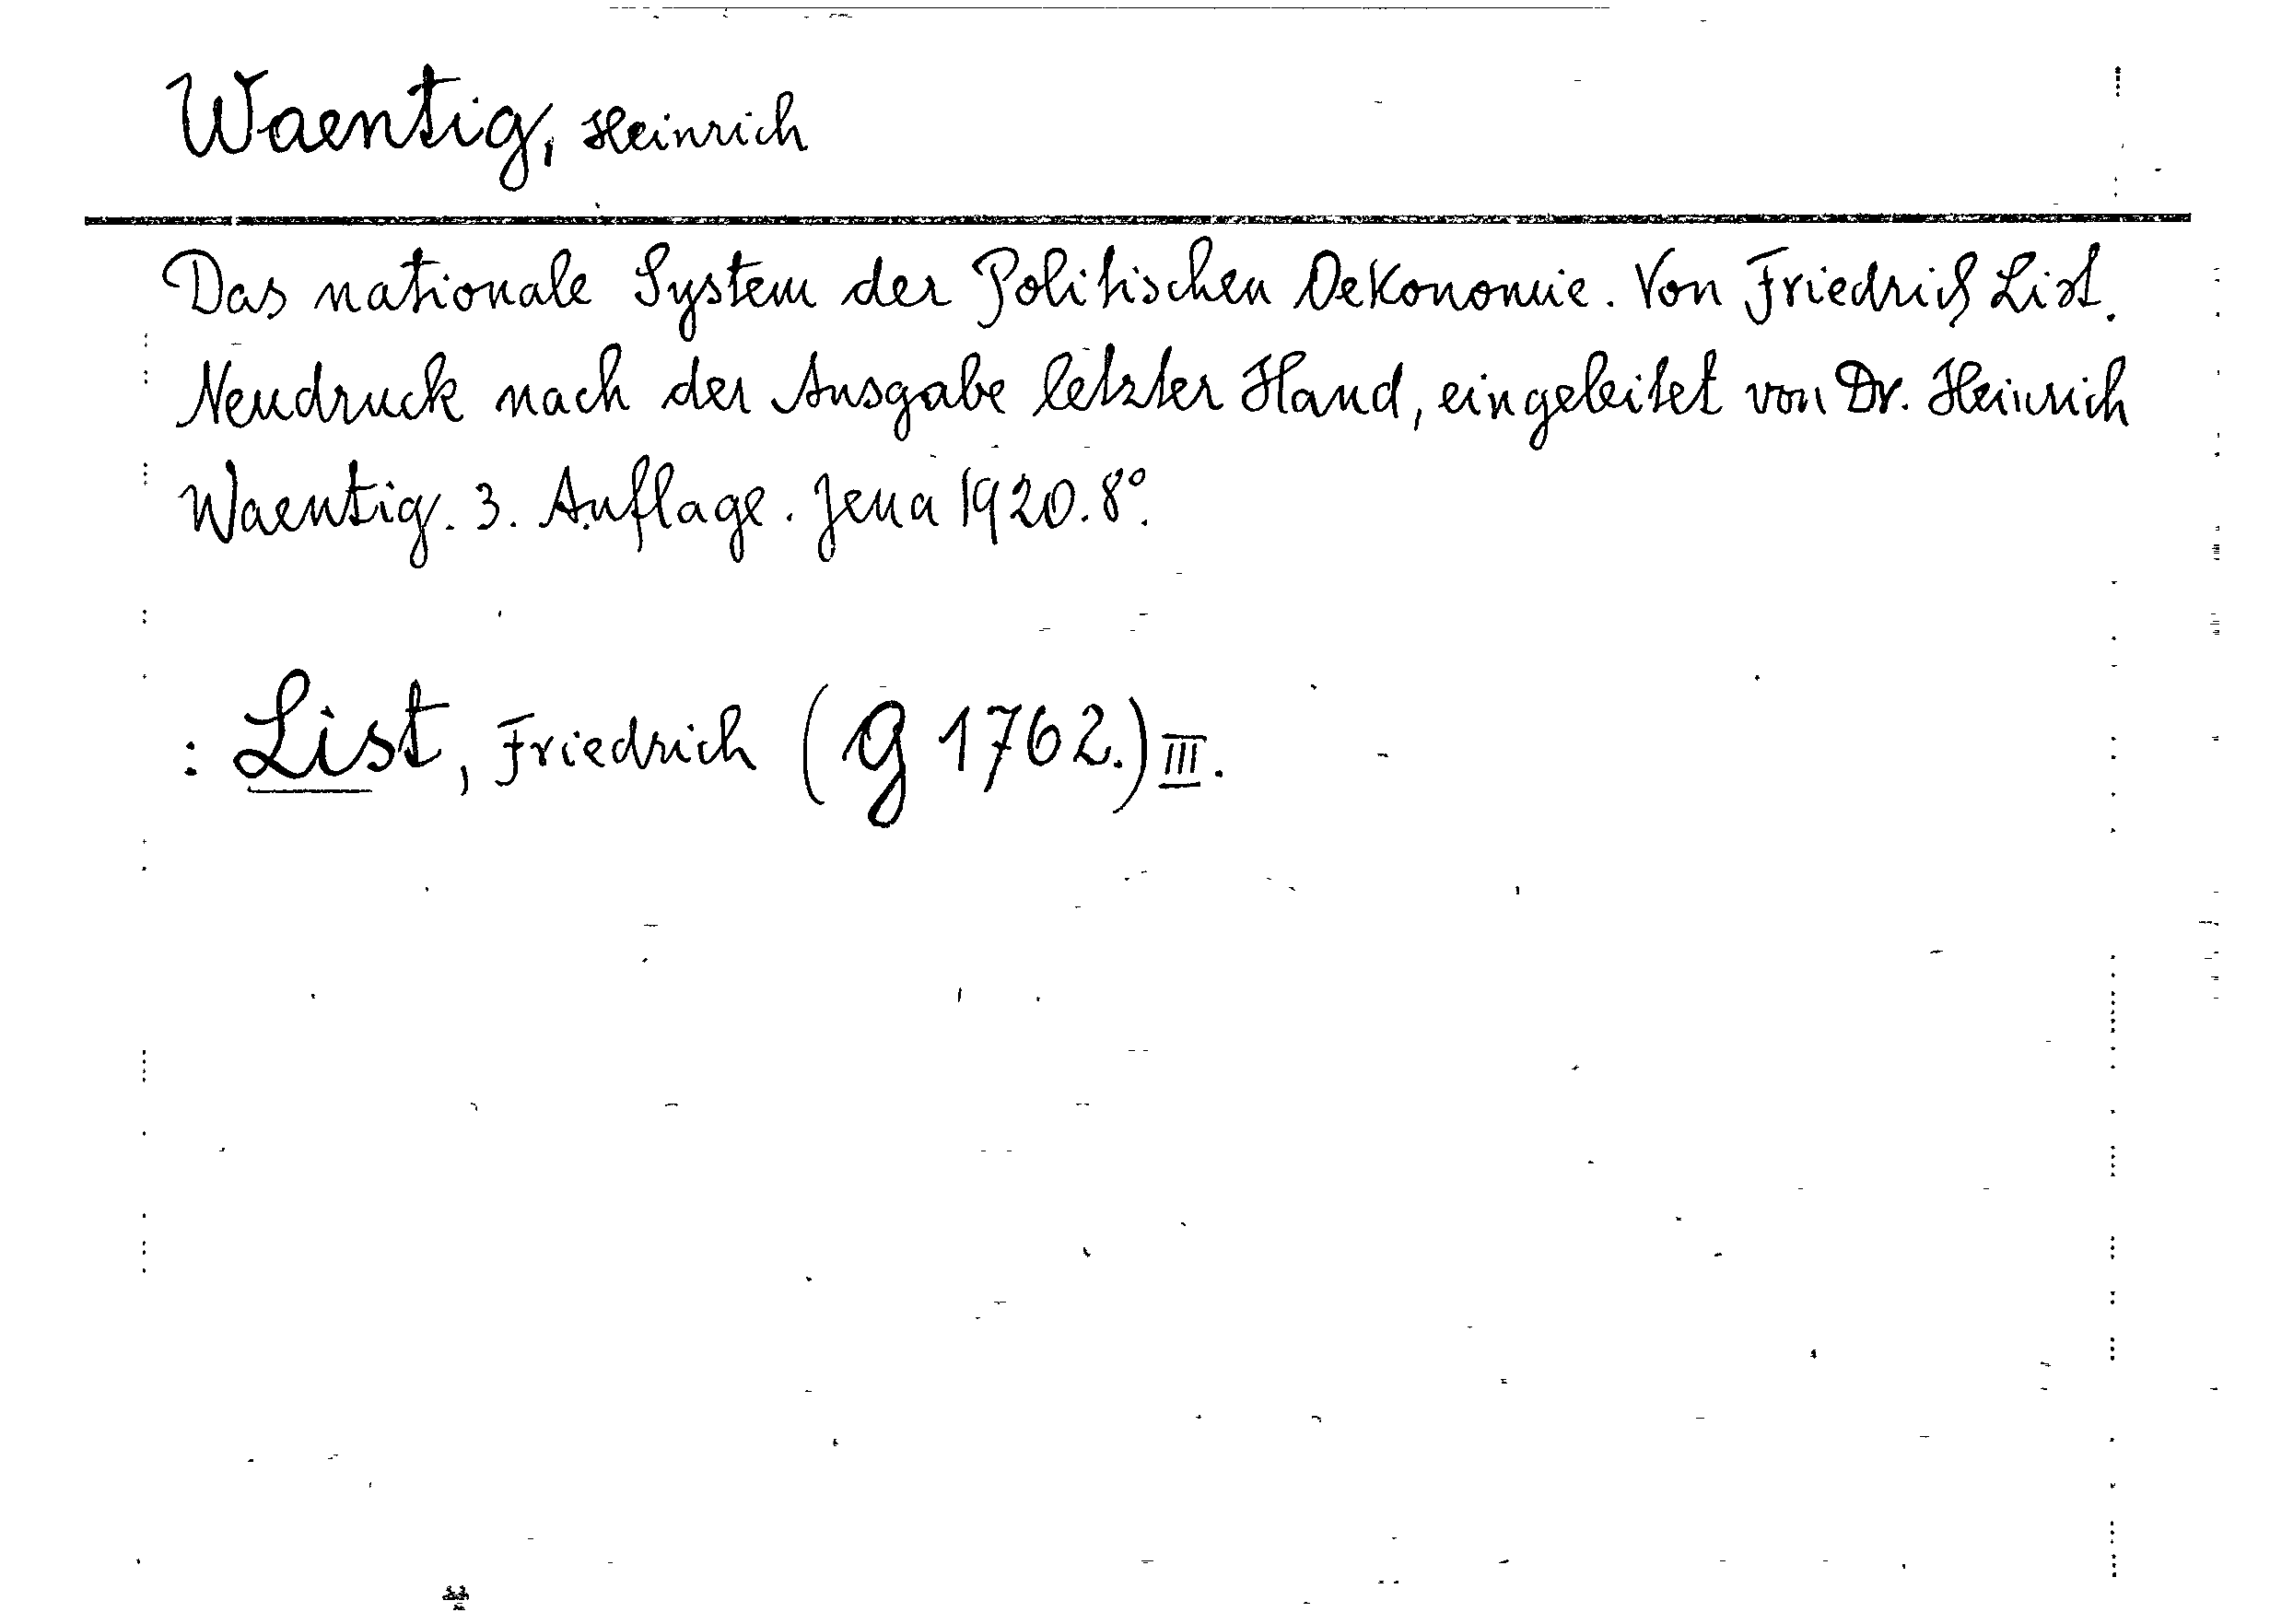 Waentig, Heinrich
Das nationale System der Politischen Oekonomie. Von Friedrich List.
Neudruck nach der Ausgabe letzter Hand, eingeleitet von Dr. Heinrich
Waentig. 3. Auflage. Jena 1920. 8°.
: List, Friedrich (g 1762.) III.